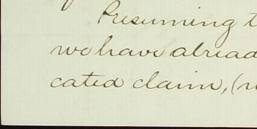 Presuming t
we have alread
cated claim, (